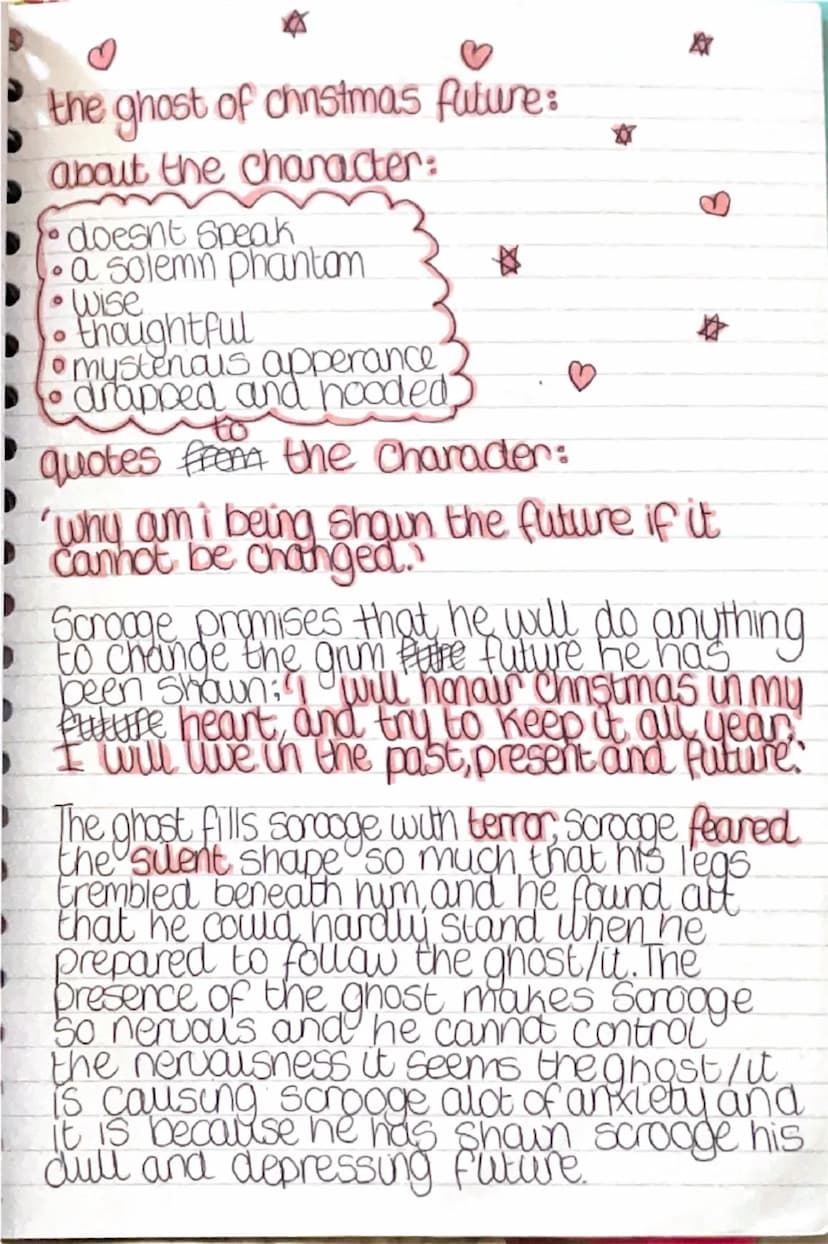 the ghost of christmas future:
about the character:
• doesnt speak
• a solemn phantom
• wise
• thoughtful
• mysterious apperance
• drapped and hooded
to
quotes from the character:
'why am i being shown the future if it
cannot be changed.'
Scrooge promises that he will do anything
to change the grim future he has
been shown; 'I will honour christmas in my
future heart, and try to keep it all year.
I will live in the past, present and future.'
The ghost fills scrooge with terror, Scrooge feared
the silent shape so much that his legs
trembled beneath hym, and he found out
that he could hardly stand when he
prepared to follow the ghost/it. The
presence of the ghost makes Scrooge
so nervous and he cannot control
the nervousness it seems the ghost/it
is causing scrooge alot of anxiety and
it is because he has shown scrooge his
dull and depressing future.